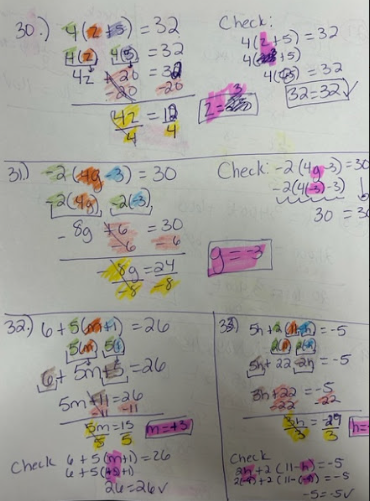 30.) 4(z+5) = 32
4(z) 4(5) = 32
4z + 20 = 32
-20 -20
4z = 12
4 4
z = 3
Check:
4(z+5) = 32
4(3+5)
4(8) = 32
32 = 32 ✓
31.) -2(4g-3) = 30
-2(4g) -2(-3)
-8g +6 = 30
-6 -6
-8g = 24
-8 -8
g = -3
Check: -2(4g-3) = 30
-2(4(-3)-3)
30 = 30
32.) 6 + 5(m+1) = 26
5(m) 5(1)
6 + 5m + 5 = 26
5m + 11 = 26
-11 -11
5m = 15
5 5
m = +3
Check 6 + 5(m+1) = 26
6 + 5(+3+1)
26 = 26 ✓
33) 5h + 2(11-h) = -5
5h + 22 - 2h = -5
3h + 22 = -5
-22 -22
3h = -27
3 3
h =
Check
5h + 2(11-h) = -5
-5 = -5 ✓